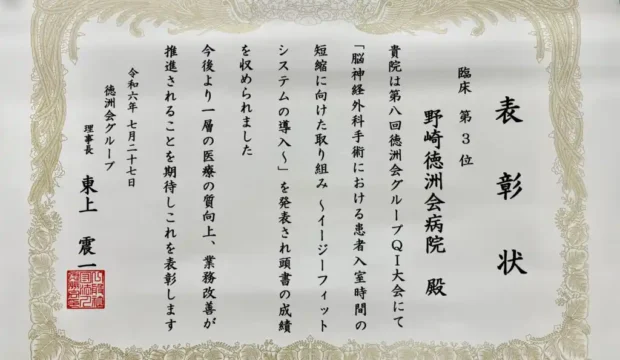 表彰状
臨床 第3位
野崎徳洲会病院 殿
貴院は第八回徳洲会グループQI大会にて
「脳神経外科手術における患者入室時間の
短縮に向けた取り組み ~イージーフィット
システムの導入~」を発表され頭書の成績
を収められました
今後より一層の医療の質向上、業務改善が
推進されることを期待しこれを表彰します
令和六年 七月二十七日
徳洲会グループ
理事長 東上 震一